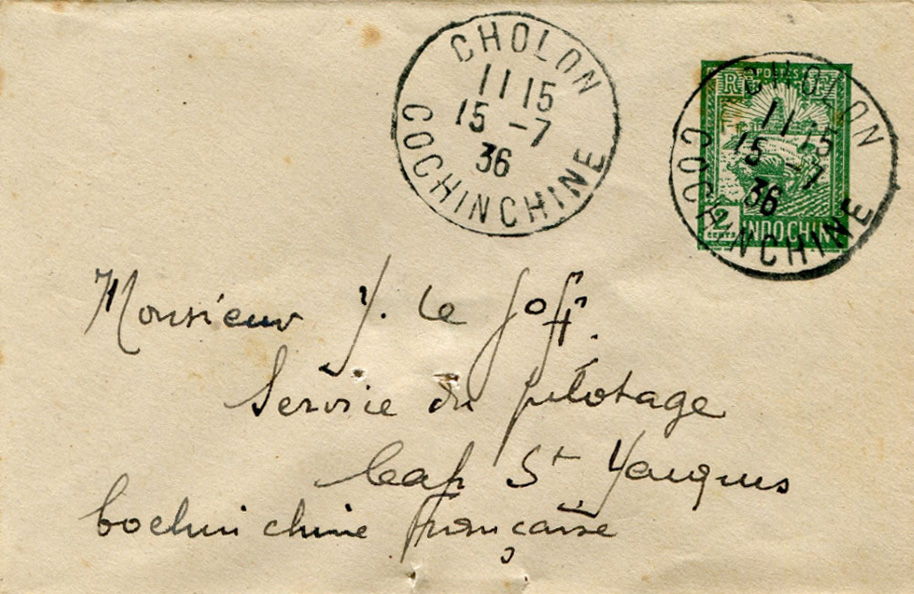 CHOLON
11 15
15 -7
36
COCHINCHINE
POSTES
CHOLON
11 15
15 -7
36
COCHINCHINE
2
CENTS
INDOCHINE
Monsieur J. Le Goff.
Service du pilotage
Cap St Jacques
Cochinchine française